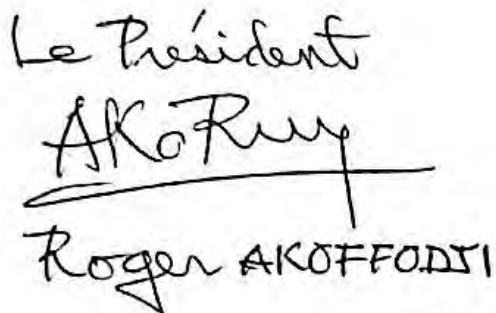 Le Président
AKoRuy
Roger AKOFFODJI